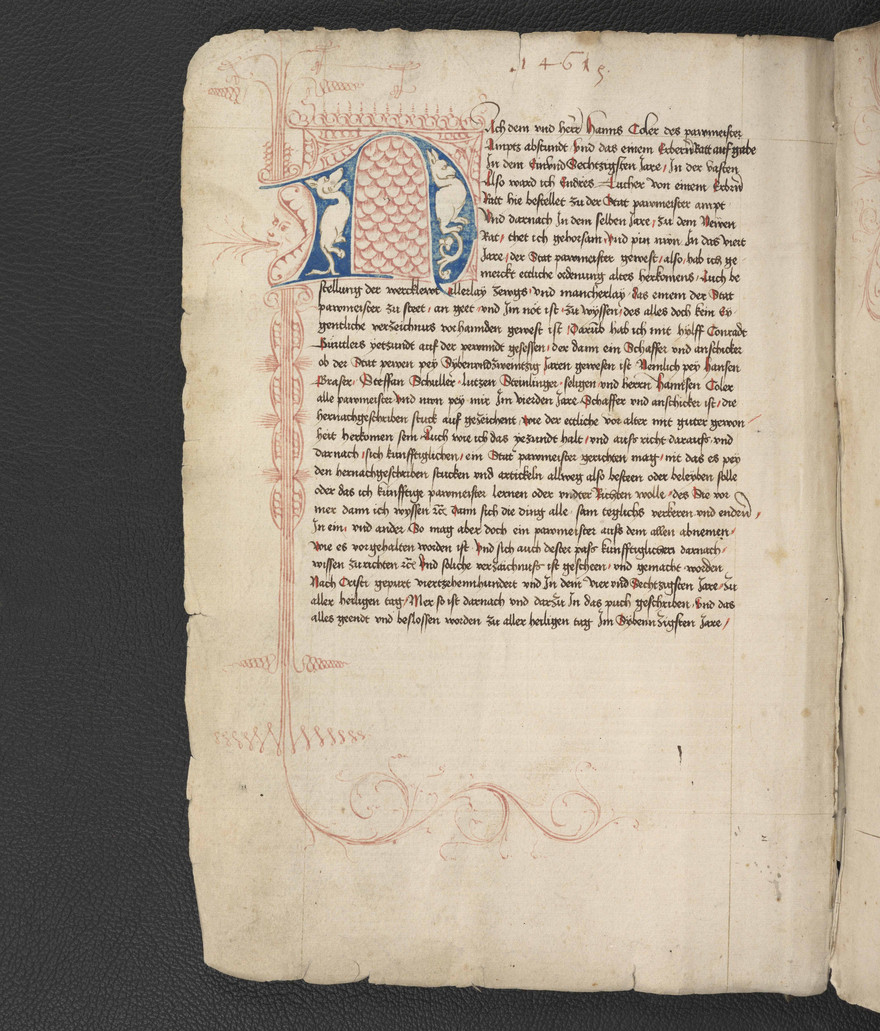 1461
Nach dem vnd herr Hanns Coler des pawmeister
Ampts abstundt / Vnd das einem Erbern Ratt auf gabe
In dem Einvnd Sechtzigsten Jare / In der vasten
Also ward ich Endres Tucher von einem Erbern
Ratt hie bestellet zu der Stat pawmeister ampt
Vnd darnach In dem selben Jare / zu dem Newen
Rat / thet ich gehorsam / vnd pin nwn In das viert
Jare / der Stat pawmeister gewest / also / hab ich ge
merckt ettliche ordenung altes herkomens / Auch be
stellung der wercklewt allerlay zewgs / vnd mancherlay das einem der Stat
pawmeister zu steet / an geet vnd Im not ist zu wyssen / des alles doch kein ey
gentliche verzeichnus vorhannden gewest ist / Darumb hab ich mit hylff Conradt
yetzundt auf der peewnndt gesessen / der dann ein Schaffer vnd anschicker
ob der Stat pewen pey Sybenvndzweintzig Jaren gewesen ist Nemlich pey Hansen
Graser / Steffan Schuller / Lutzen Steinlinger / seligen vnd herrn Hannsen Coler
alle pawmeister vnd nwn pey mir Im vierden Jare Schaffer vnd anschicker ist / die
hernachgeschriben stuck auf gezeichent / wie der ettliche vor alter mit guter gewon
heit herkomen sein / Auch wie ich das yezundt halt / vnd auss richt darauss vnd
darnach / sich kunfftiglichen / ein Stat pawmeister gerichten mag / mit das es pey
den hernachgeschriben stucken vnd artickeln allweg also besteen oder beleyben solle
oder das ich kunfftige pawmeister lernen oder vndter Richten wolle / des Sie vor
mer dann ich wyssen etc Dann sich die ding alle sam teglichs verkeren vnd endern /
In ein / vnd ander / So mag aber doch ein pawmeister auss dem allen abnemen /
Wie es vorgehalten worden ist Vnd sich auch dester pass kunfftiglichen darnach /
wissen zu richten etc Vnd soliche verzaichnuss ist gescheen / vnd gemacht worden
Nach Cristi gepurt viertzehennhundert vnd In dem Vier vnd Sechtzigsten Jare / Zu
aller heiligen tag / Mer so ist darnach vnd darzu In das puch geschriben / Vnd das
alles geendt vnd beslossen worden zu aller heiligen tag Im Sybennzigsten Jare /